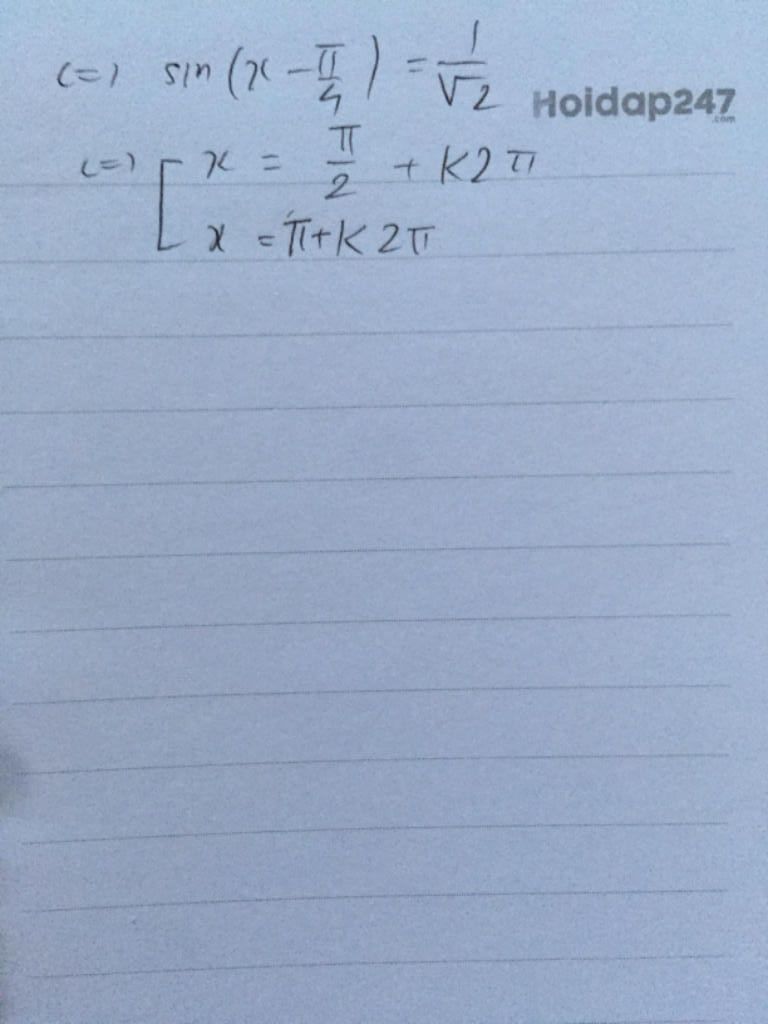 (=) sin(x - π/4) = 1/√2
Hoidap247
.com
(=) [ x = π/2 + K2π
x = π + K2π